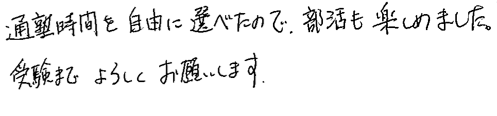 通塾時間を自由に選べたので、部活も楽しめました。
受験まで よろしく お願いします.